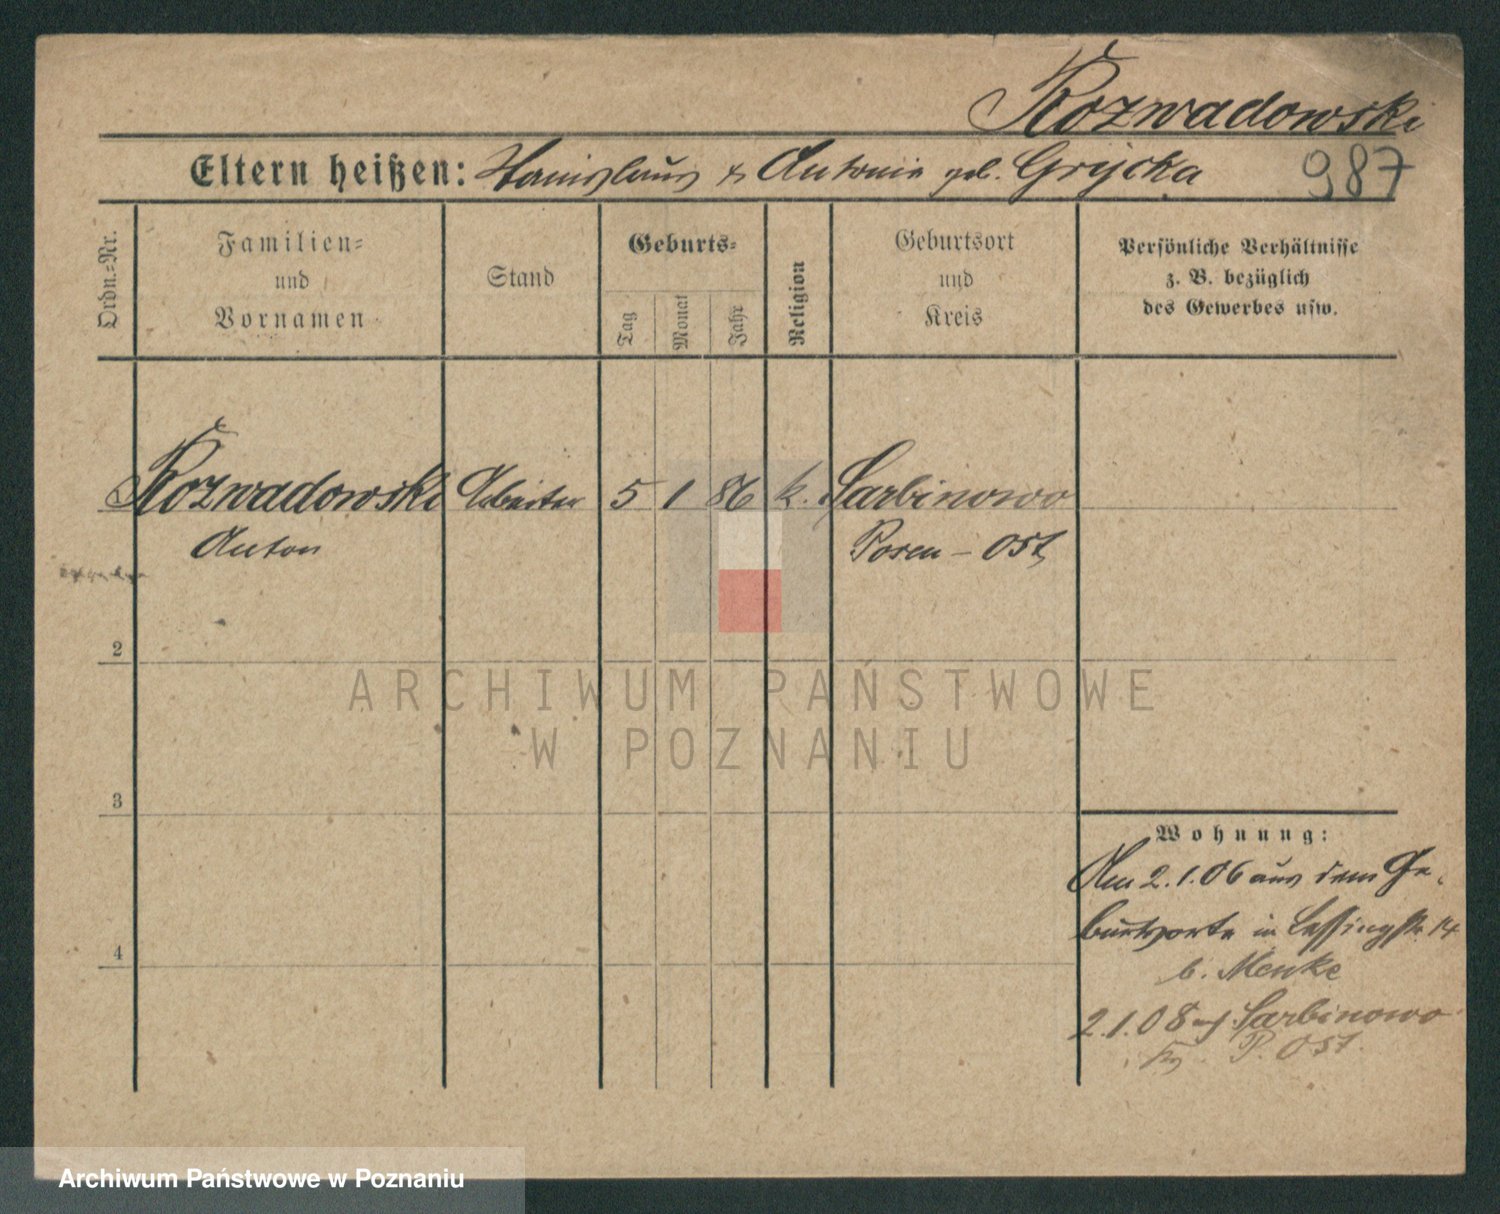 Rozwadowski
Eltern heißen: Stanislaus & Antonie geb. Grycka
987
Ordn.=Nr.
Familien=
und
Vornamen
Stand
Geburts=
Tag
Monat
Jahr
Religion
Geburtsort
und
Kreis
Persönliche Verhältnisse
z. B. bezüglich
des Gewerbes usw.
Rozwadowski Arbeiter 5 1 86 k. Sarbinowo
Anton Posen - Ost
2
3
4
Wohnung:
Am 2.1.06 aus dem Ge-
burtsorte in Lessingstr. 14
b. Menke
2.1.08 Sarbinowo
P. Ost.
ARCHIWUM PAŃSTWOWE
W POZNANIU
Archiwum Państwowe w Poznaniu